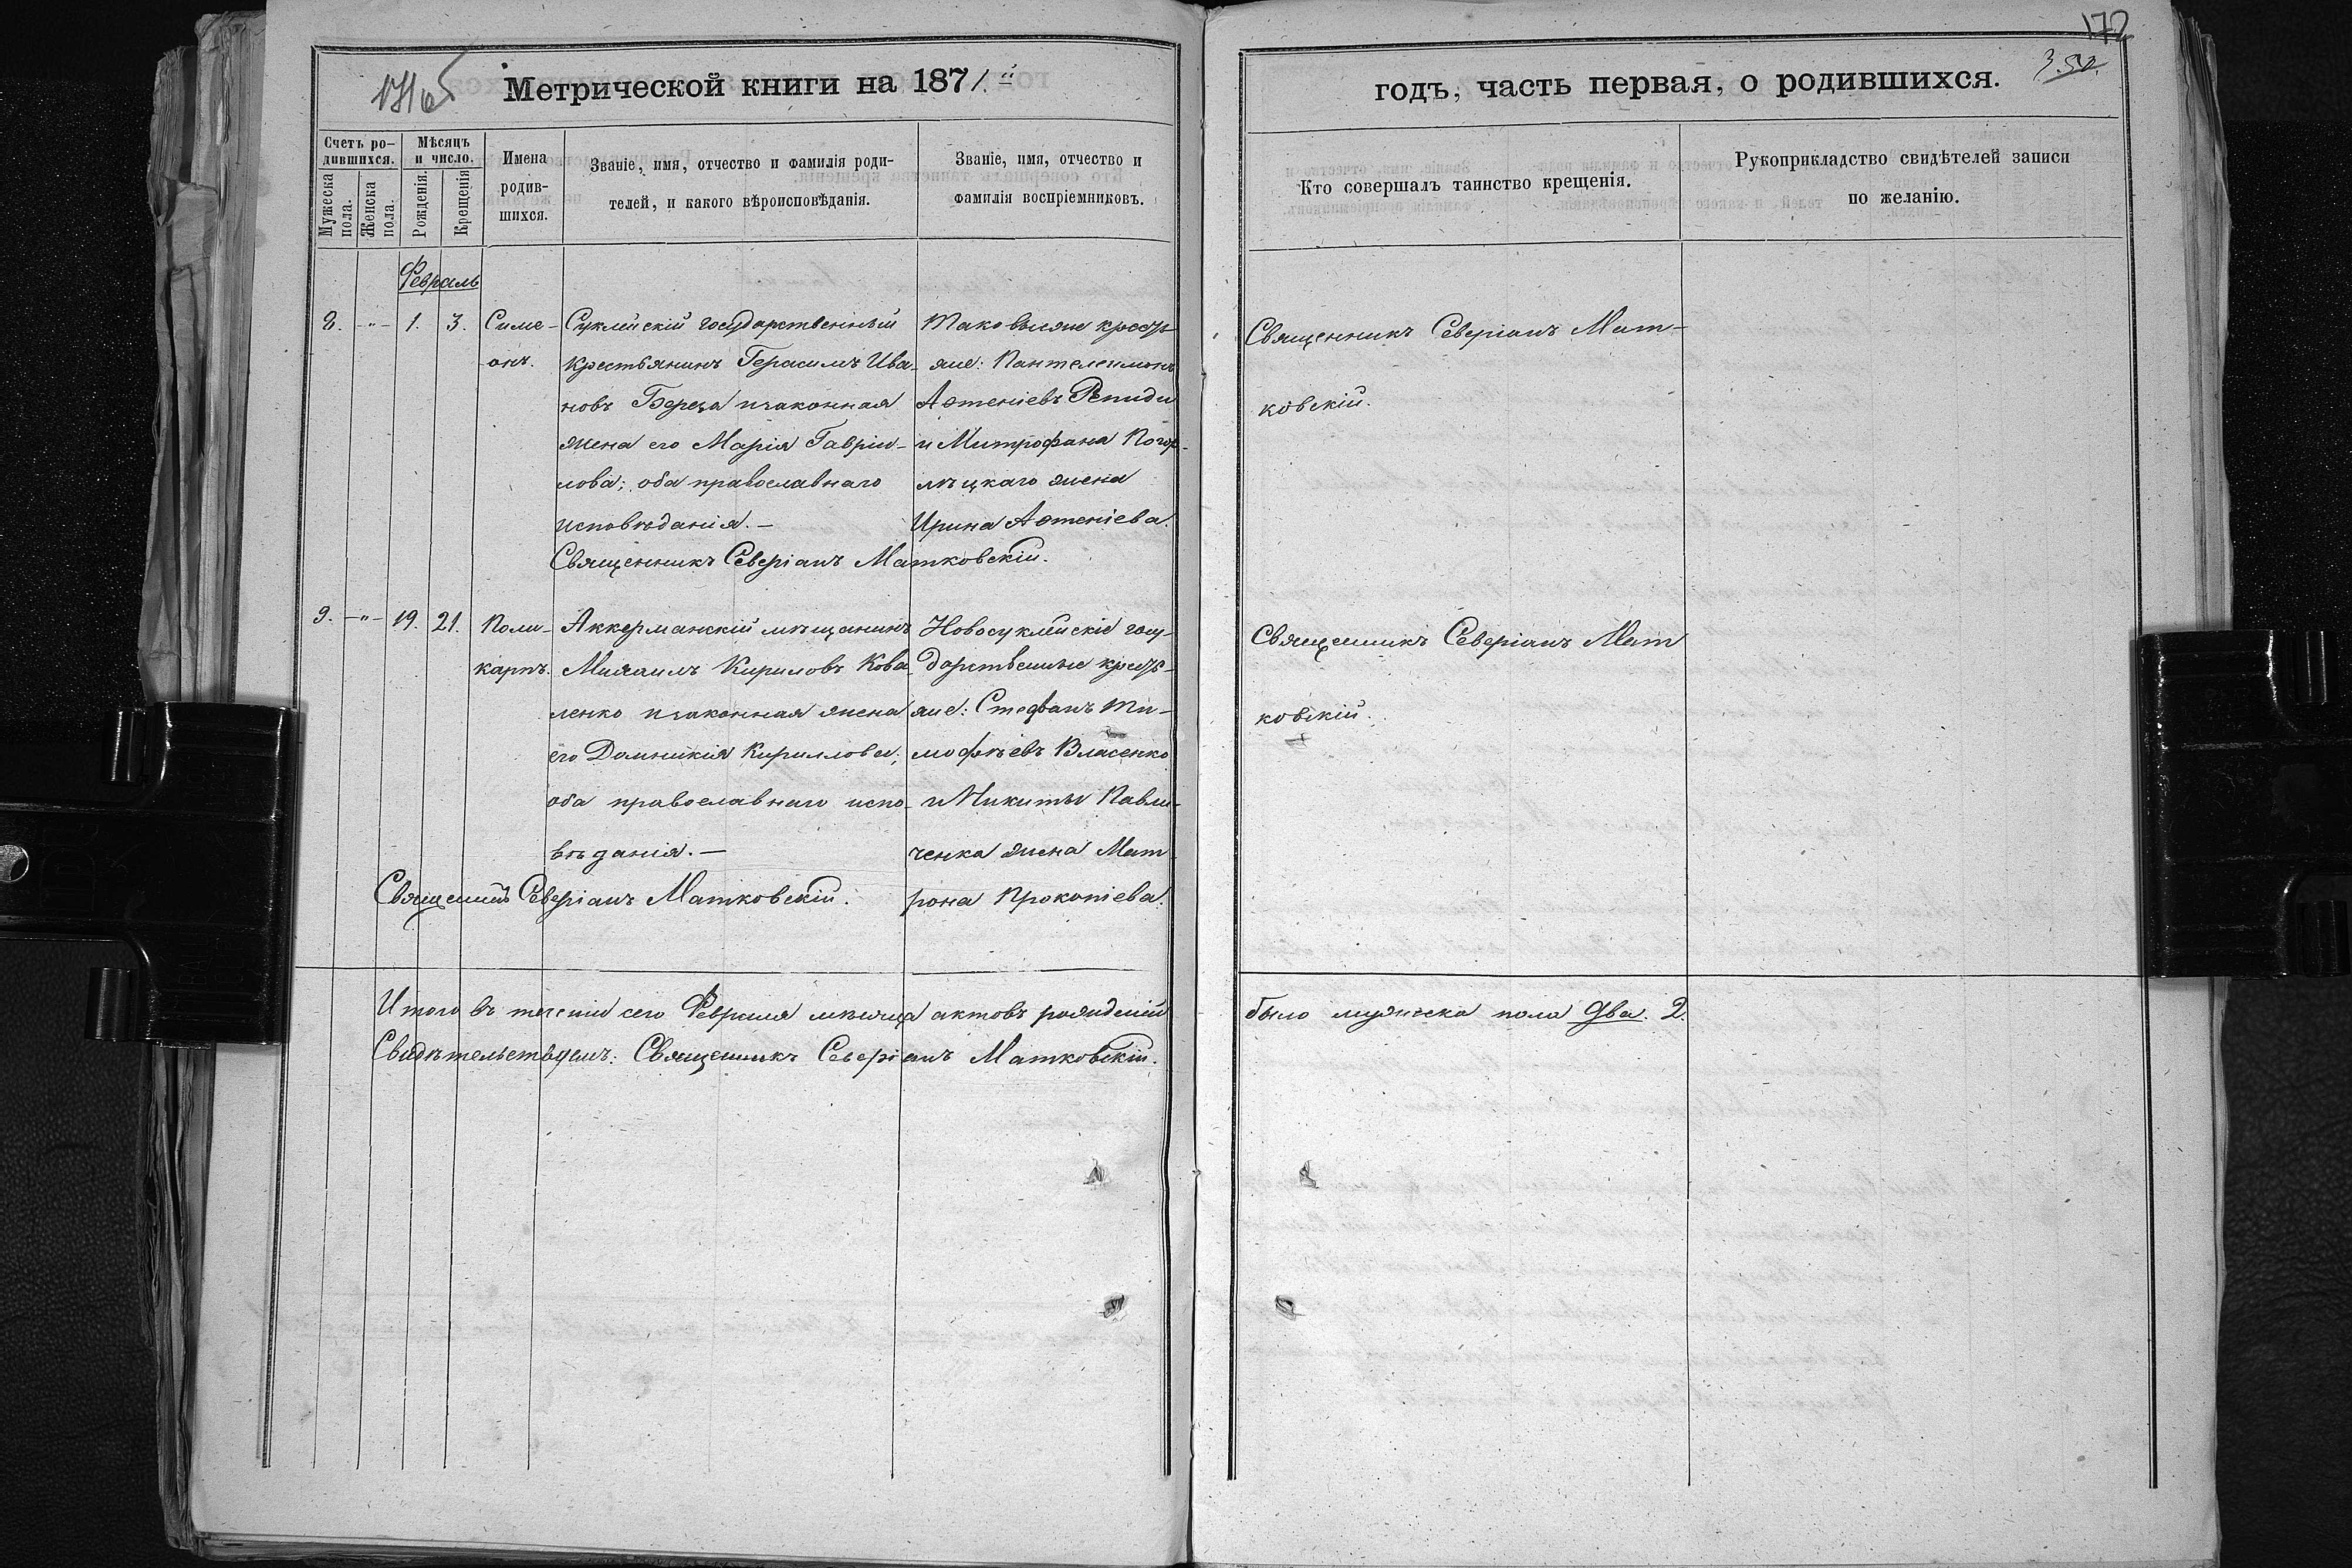 172
3.50.
Метрической книги на 1871.й
годъ, часть первая, о родившихся.
Счетъ ро-
дившихся.
Мужеска
пола.
Женска
пола.
Мѣсяцъ
и число.
Рожденія.
Крещенія
Имена
родив-
шихся.
Званіе, имя, отчество и фамилія роди-
телей, и какого вѣроисповѣданія.
Званіе, имя, отчество и
фамилія воспріемниковъ.
Кто совершалъ таинство крещенія.
Рукоприкладство свидѣтелей записи
по желанію.
Февраль
8. -"- 1. 3. Симе-
онъ.
Суклейскій государственный
крестьянинъ Герасимъ Ива-
новъ Береза и законная
жена его Марія Гавріи-
лова; оба православнаго
исповѣданія.-
Священникъ Северіанъ Матковскій.
Таковыеже кресть-
яне: Пантелеимонъ
Афтеніевъ Репиди
и Митрофана Погор-
лецкаго жена
Ирина Афтеніева.
Священникъ Северіанъ Мат-
ковскій.
9. -"- 19. 21. Поли-
карпъ.
Аккерманскій мѣщанинъ
Михаилъ Кириловъ Кова-
ленко и законная жена
его Домникія Кириллова;
оба православнаго испо-
вѣданія.-
Священникъ Северіанъ Матковскій.
Новосуклейскіе госу-
дарственные кресть-
яне: Стефанъ Ти-
мофѣевъ Власенко
и Никиты Павли-
ченка жена Мат-
рона Прокопіева.
Священникъ Северіанъ Мат
ковскій.
Итого въ теченіи сего Февраля мѣсяца актовъ рожденій было мужеска пола два. 2.
Свидѣтельствуемъ: Священникъ Северіанъ Матковскій.